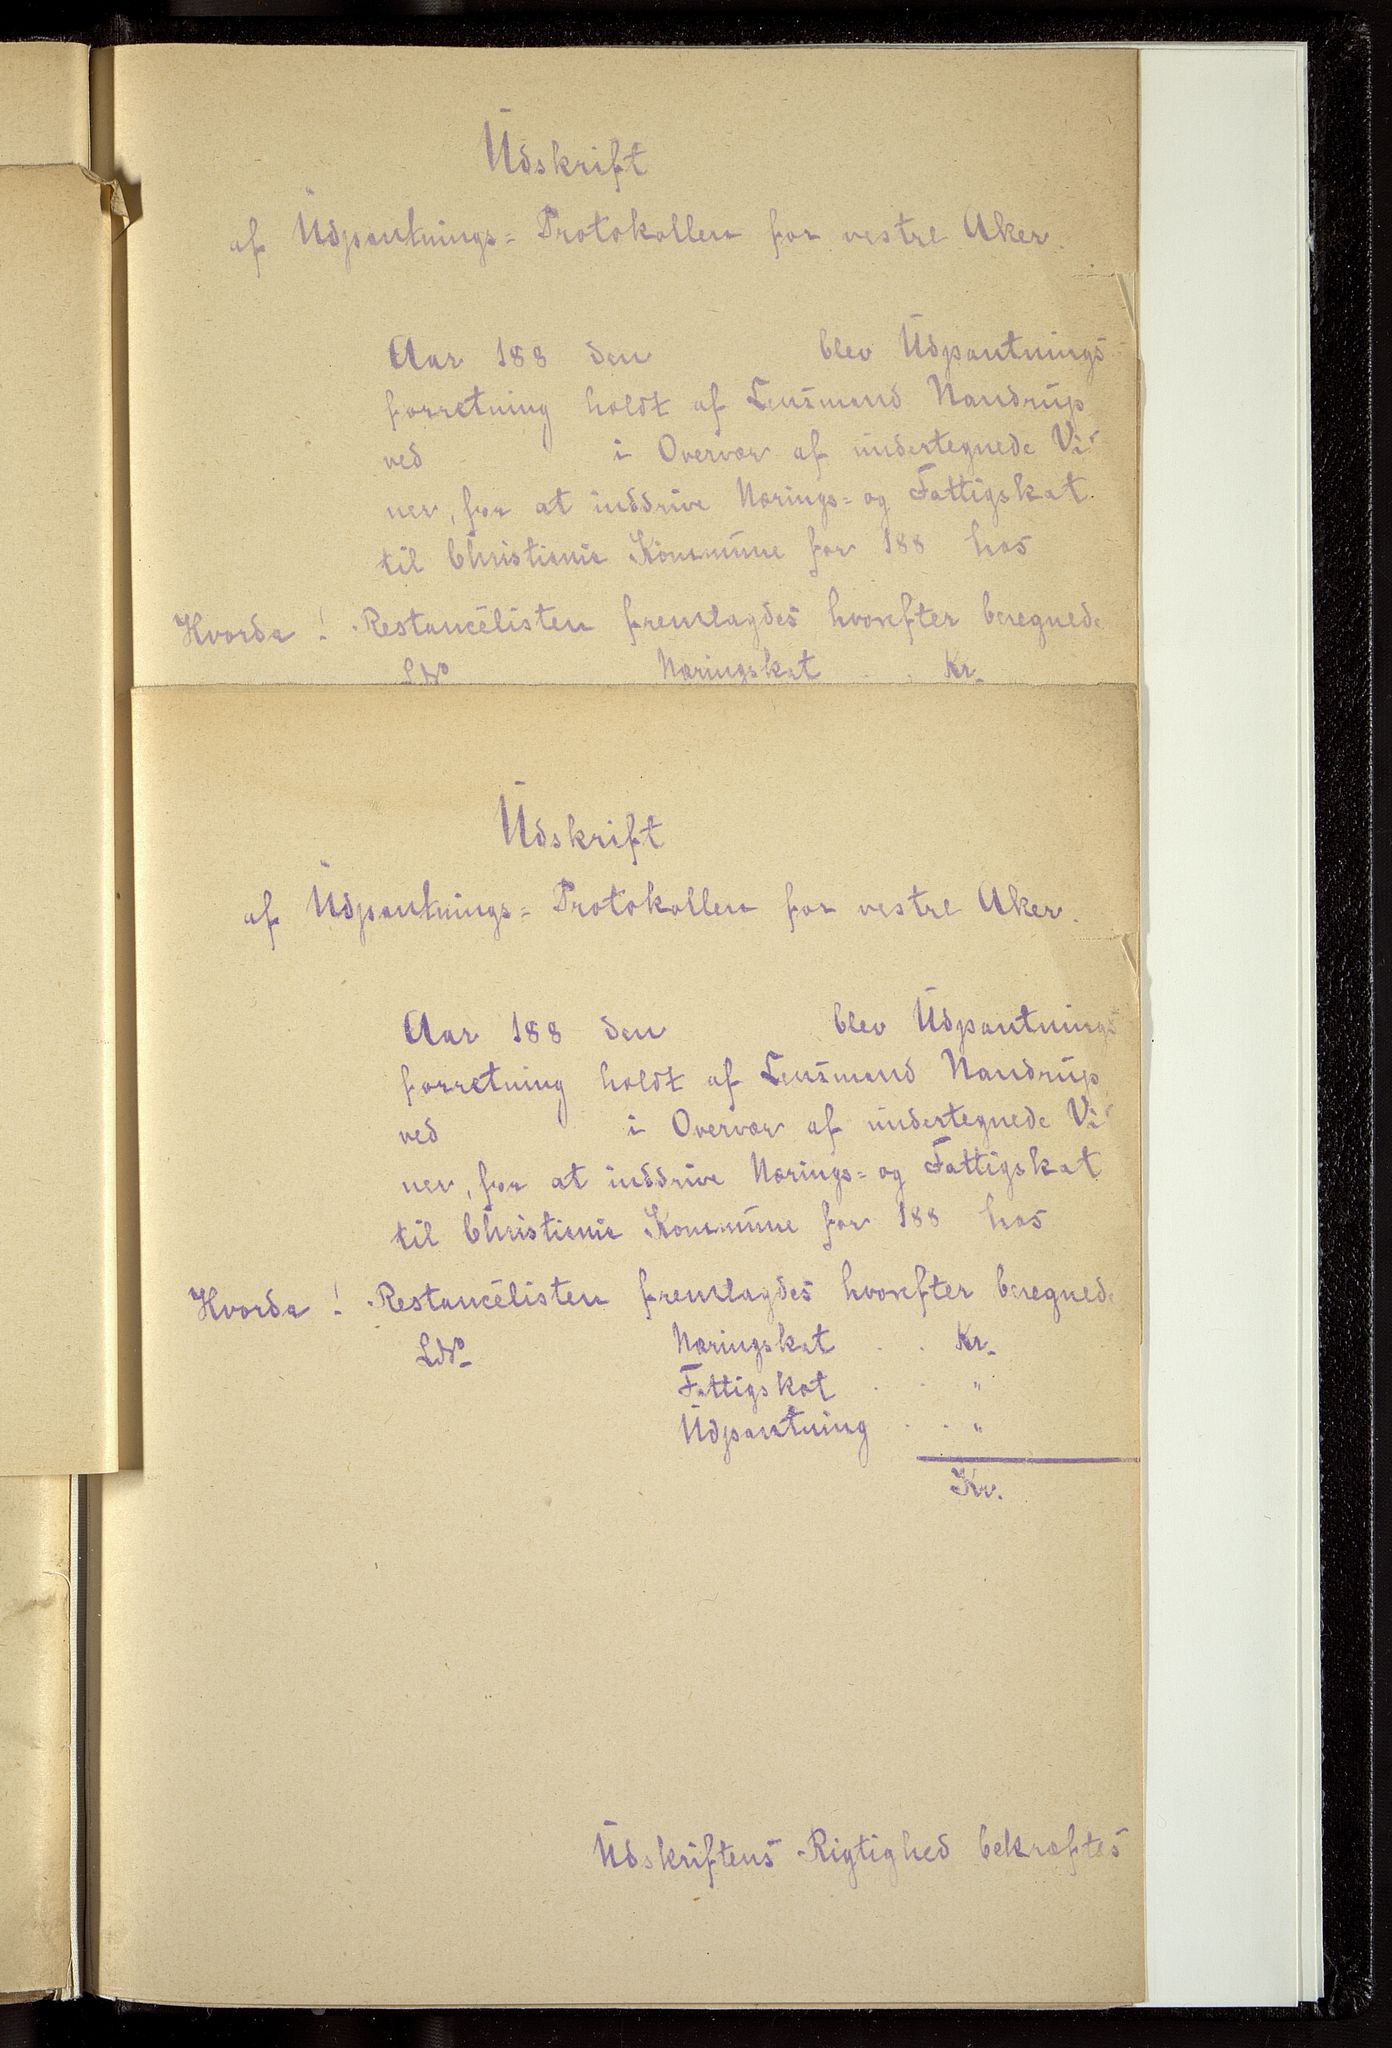 Udskrift
af Udpantnings= Protokollen for vestre Aker.
Aar 188 den blev Udpantnings
forretning holdt af Lensmand Nandrup
ved i Overvær af undertegnede Vi-
ner, for at inddrive Nærings= og Fattigskat
til Christiania Kommune for 188 hos
Hvorda! Restancelisten fremlagdes hvorefter beregnede
LNº Næringskat . . Kr.
Udskrift
af Udpantnings= Protokollen for vestre Aker.
Aar 188 den blev Udpantnings
forretning holdt af Lensmand Nandrup
ved i Overvær af undertegnede Vi-
ner, for at inddrive Nærings= og Fattigskat
til Christiania Kommune for 188 hos
Hvorda! Restancelisten fremlagdes hvorefter beregnede
LNº Næringskat . . Kr.
Fattigskat . . "
Udpantning . . "
Kr.
Udskriftens Rigtighed bekræftes